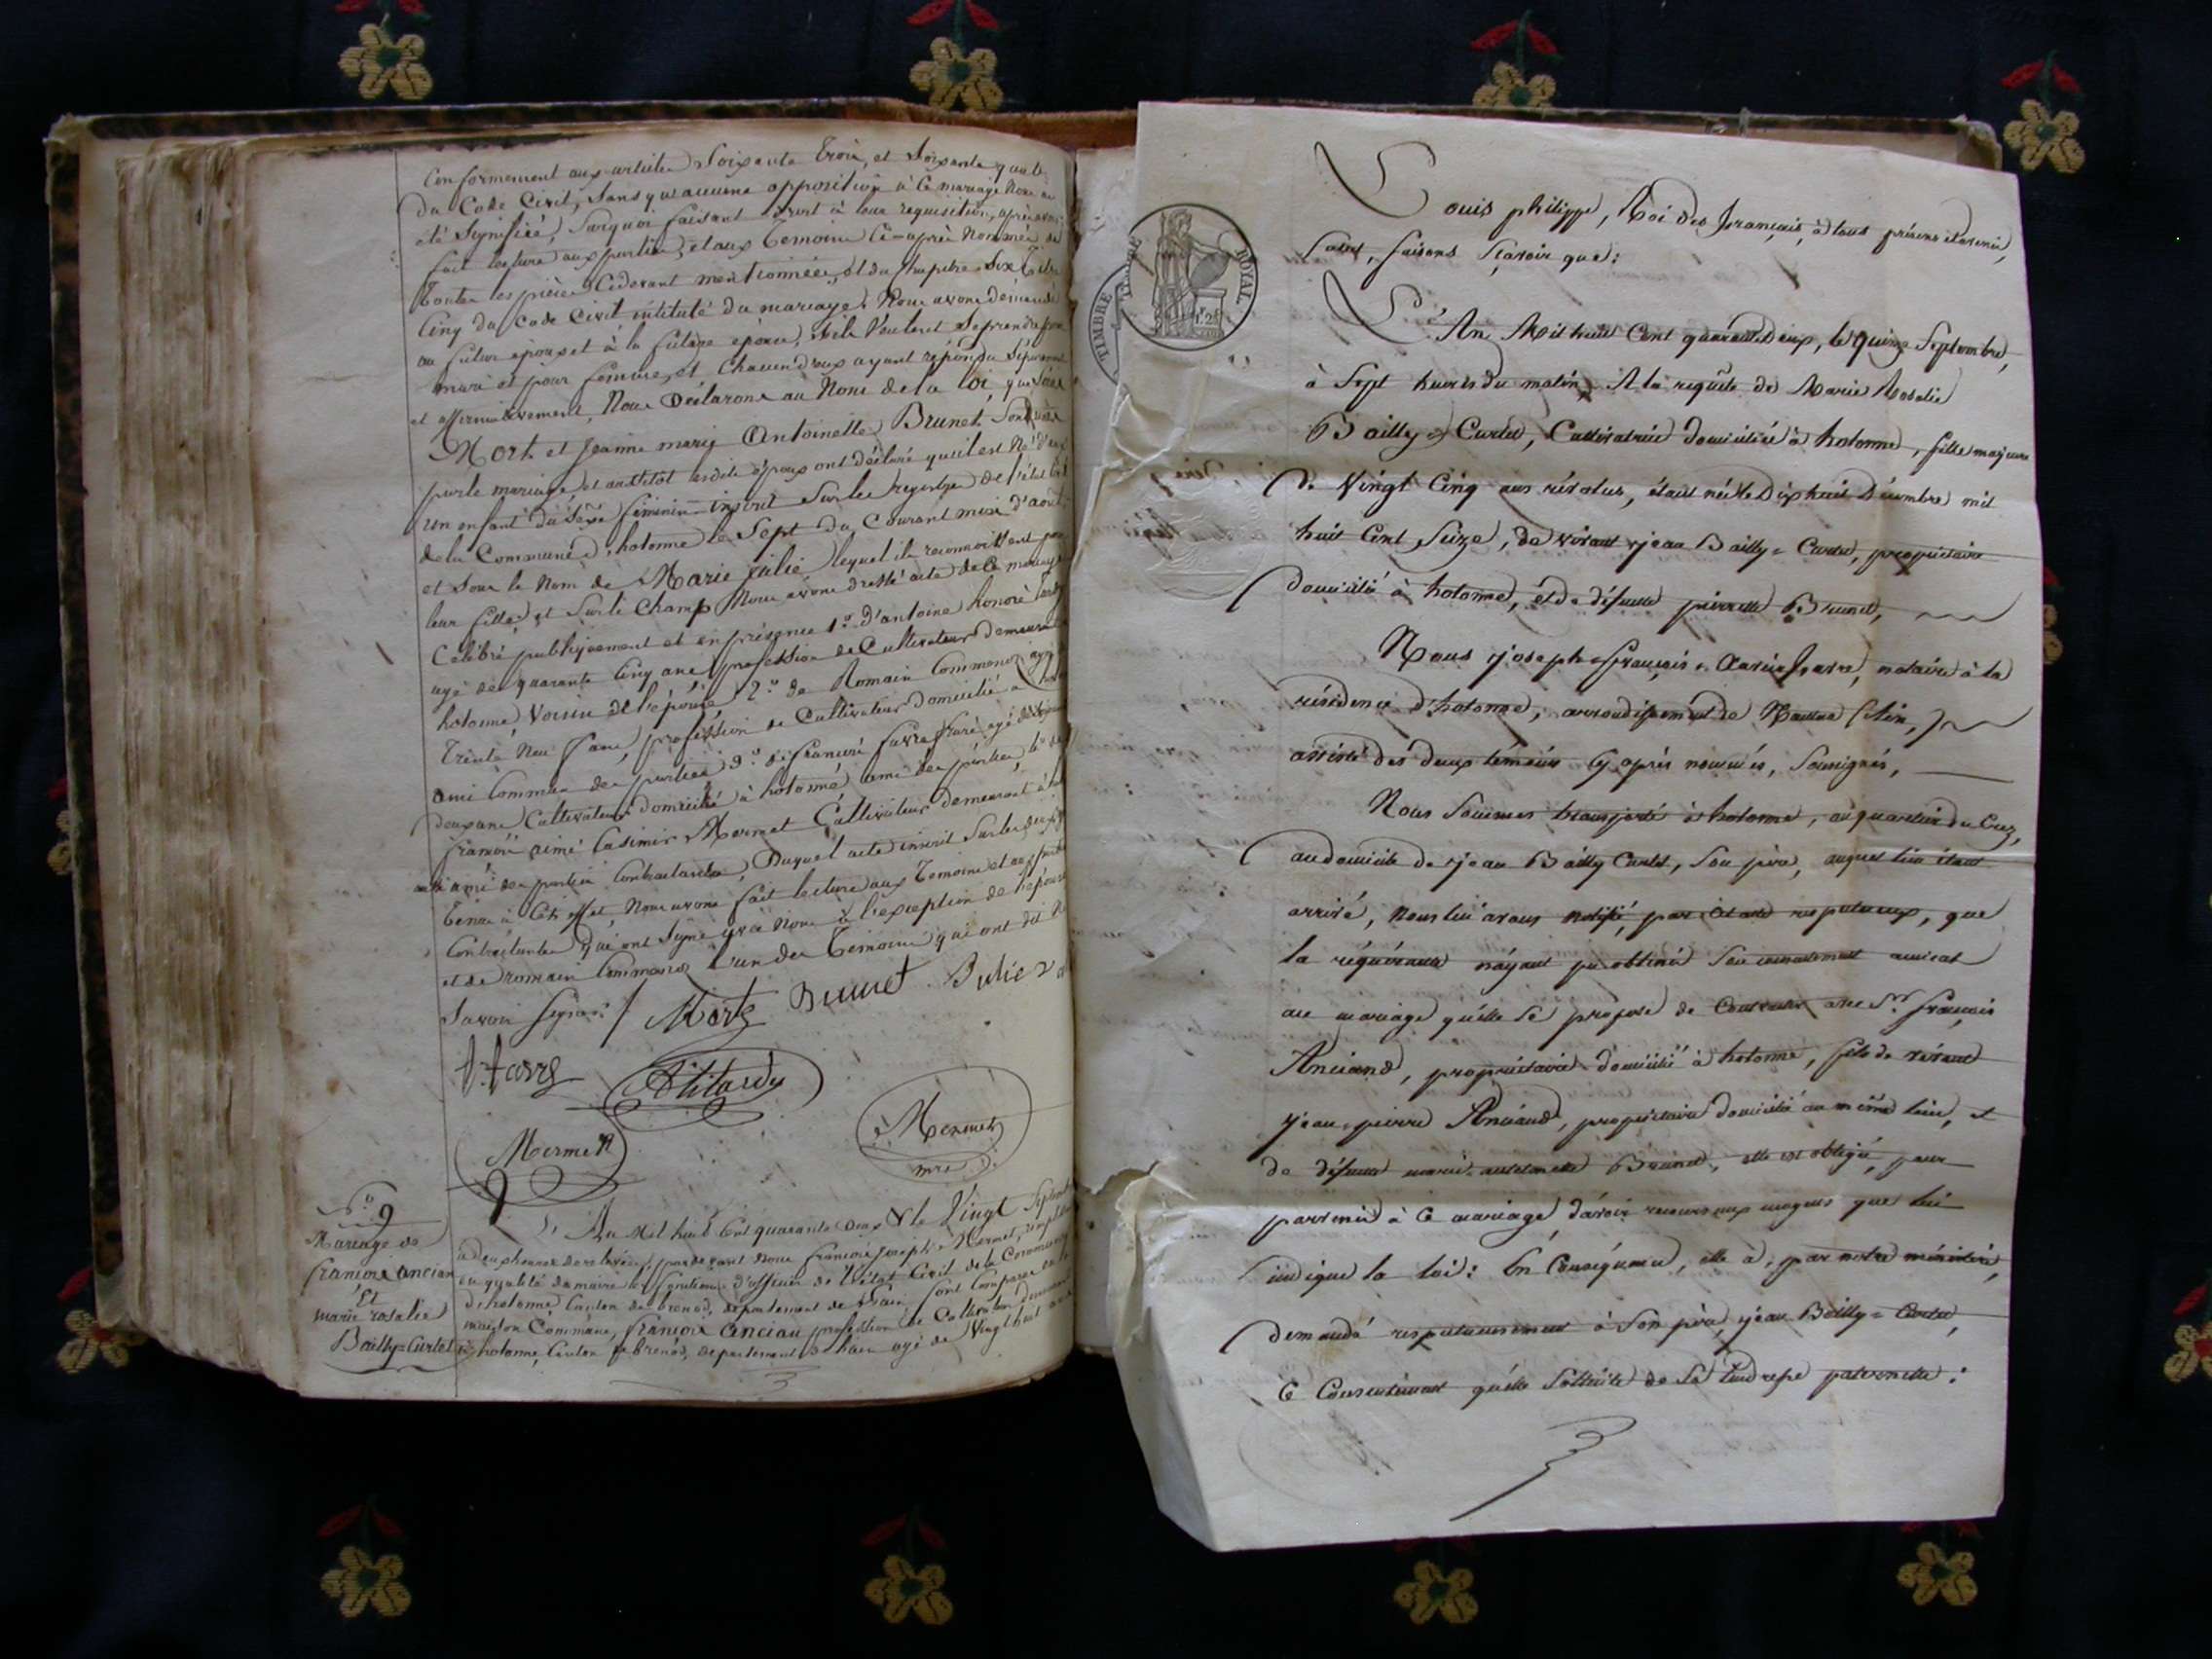 Conformement aux articles Soixante trois, et Soixante quatre
du Code Civil, Sans qu'aucune opposition à Ce mariage Nous ait
été Signifiée, Surquoi faisant droit à leur requisition, après avoir
fait lecture aux parties, et aux temoins Ci-après Nommés de
toutes les pièces Cidevant mentionnées, et du chapitre Six titre
Cinq du Code Civil intitulé du mariage. Nous avons demandé
au futur époux et à la future épouse, s'ils veulent Se prendre pour
mari et pour femme, et Chacun d'eux ayant répondu Séparement
et affirmativement, Nous Déclarons au Nom de la loi, que
Mort et Jeanne marie Antoinette Brunet Sont unis
par le mariage, et aussitôt lesdits époux ont déclaré qu'il est Né d'eux
un enfant du Sexe féminin inscrit Sur les registres de l'état Civil
de la Commune d'hotonne le Sept du Courant mois d'aout
et Sous le Nom de Marie Julie lequel ils reconnoissent pour
leur fille, et Sur le Champ Nous avons dressé acte de Ce mariage
Célébré publiquement et en présence 1.° d'antoine honoré
agé de quarante Cinq ans profession de Cultivateur demeurant
hotonne Voisin de l'épouse 2.° de Romain Commonoz agé
trente Neuf ans, profession de Cultivateur domicilié à
ami Commun des parties 3.° de françois favre agé de
deux ans Cultivateur domicilié à hotonne ami des parties, 4.° de
françois aimé Casimir Mermet Cultivateur demeurant à
ami des parties Contractantes, Duquel acte inscrit Sur les deux
tenus à Cet effet, Nous avons fait lecture aux temoins et aux parties
Contractantes qui ont Signé avec Nous à l'exception de l'épouse
et de romain Commonoz l'un des temoins qui ont dit Ne
Savoir Signer. / Mort Brunet
Mermet
Mermet
mre
N.° 9
Mariage de
françois ancian
Et
marie rosalie
Bailly=Curtet
L'An Mil huit Cent quarante deux & le Vingt Septembre
à deux heures de relevée, pardevant Nous françois joseph Mermet,
en qualité de maire les fonctions d'officier de l'état Civil de la Commune
d'hotonne, Canton de brenod, département de l'ain Sont Comparus en la
maison Commune, françois Ancian profession de Cultivateur demeurant
à hotonne, Canton de brenod, departement de l'ain agé de Vingt huit ans
TIMBRE
TIMBRE ROYAL
Louis philippe, Roi des français, à tous présens et avenir,
Salut, faisons Sçavoir que:
L'An Mil huit Cent quarante deux, le quinze Septembre,
à Sept heures du matin, A la requête de Marie Rosalie
Bailly=Curtet, Cultivatrice domiciliée à hotonne, fille majeure
de Vingt Cinq ans révolus, étant née le Dix huit Décembre mil
huit Cent Seize, de vivant jean Bailly=Curtet, propriétaire
domicilié à hotonne, et de défunte pierrette Brunet,
Nous joseph=françois=Xavier favre, notaire à la
résidence d'hotonne, arrondissement de Nantua (Ain,)
assisté des deux témoins Cy après nommés, Soussignés,
Nous Sommes transporté à hotonne, au quartier du Cruz,
au domicile de jean Bailly Curtet, Son père, auquel lieu étant
arrivé, Nous lui avons notifié, par Cet acte respectueux, que
la réquérante n'ayant pu obtenir Son consentement amical
au mariage qu'elle Se propose de Contracter avec S.r françois
Anciand, propriétaire domicilié à hotonne, fils de vivant
jean=pierre Anciand, propriétaire domicilié au même lieu, et
de défunte marie=antoinette Brunet, elle est obligée, pour
parvenir à Ce mariage, d'avoir recours aux moyens que lui
indique la loi: En Conséquence, elle a, par notre ministère,
demandé respectueusement à Son père, jean Bailly=Curtet,
Ce Consentement qu'elle Sollicite de Sa tendresse paternelle: